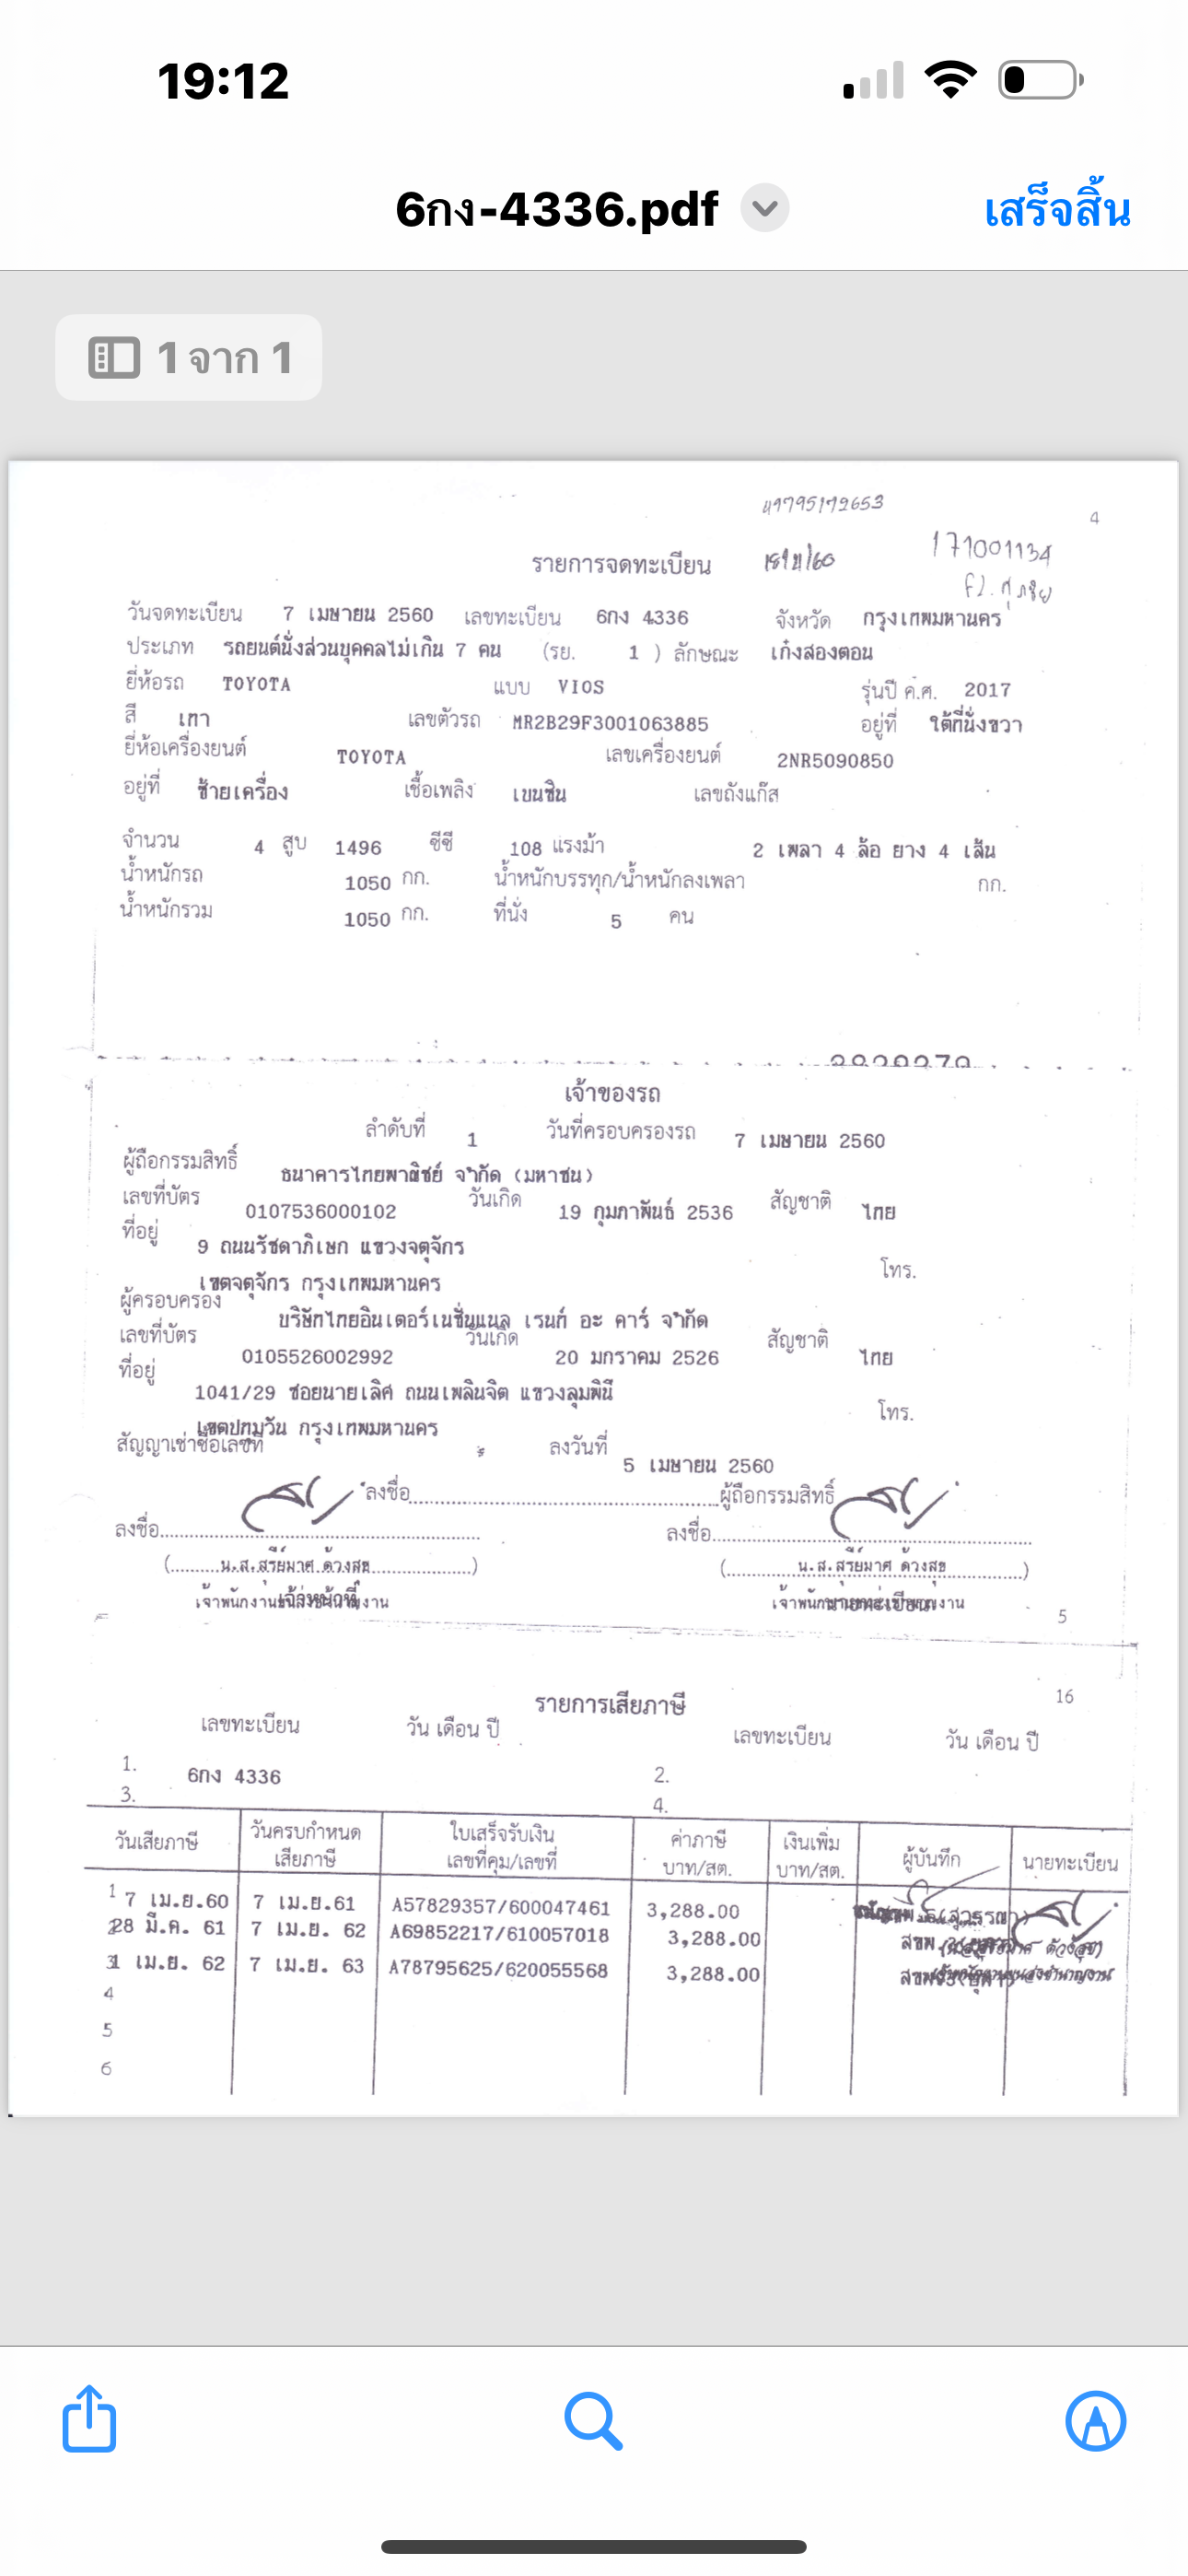 19:12
6กง-4336.pdf
เสร็จสิ้น
1 จาก 1
4
171001134
รายการจดทะเบียน
วันจดทะเบียน 7 เมษายน 2560 เลขทะเบียน 6กง 4336 จังหวัด กรุงเทพมหานคร
ประเภท รถยนต์นั่งส่วนบุคคลไม่เกิน 7 คน (รย. 1 ) ลักษณะ เก๋งสองตอน
ยี่ห้อรถ TOYOTA แบบ VIOS รุ่นปี ค.ศ. 2017
สี เทา เลขตัวรถ MR2B29F3001063885 อยู่ที่ ใต้ที่นั่งขวา
ยี่ห้อเครื่องยนต์ TOYOTA เลขเครื่องยนต์ 2NR5090850
อยู่ที่ ซ้ายเครื่อง เชื้อเพลิง เบนซิน เลขถังแก๊ส
จำนวน 4 สูบ 1496 ซีซี 108 แรงม้า 2 เพลา 4 ล้อ ยาง 4 เส้น
น้ำหนักรถ 1050 กก. น้ำหนักบรรทุก/น้ำหนักลงเพลา กก.
น้ำหนักรวม 1050 กก. ที่นั่ง 5 คน
เจ้าของรถ
ลำดับที่ 1 วันที่ครอบครองรถ 7 เมษายน 2560
ผู้ถือกรรมสิทธิ์ ธนาคารไทยพาณิชย์ จำกัด (มหาชน)
เลขที่บัตร 0107536000102 วันเกิด 19 กุมภาพันธ์ 2536 สัญชาติ ไทย
ที่อยู่ 9 ถนนรัชดาภิเษก แขวงจตุจักร
เขตจตุจักร กรุงเทพมหานคร โทร.
ผู้ครอบครอง บริษัทไทยอินเตอร์เนชั่นแนล เรนท์ อะ คาร์ จำกัด
เลขที่บัตร 0105526002992 วันเกิด 20 มกราคม 2526 สัญชาติ ไทย
ที่อยู่ 1041/29 ซอยนายเลิศ ถนนเพลินจิต แขวงลุมพินี
เขตปทุมวัน กรุงเทพมหานคร โทร.
สัญญาเช่าซื้อเลขที่ ลงวันที่ 5 เมษายน 2560
ลงชื่อ ผู้ถือกรรมสิทธิ์
ลงชื่อ ลงชื่อ
(น.ส.สุรีย์มาศ ด้วงสุข) (น.ส.สุรีย์มาศ ด้วงสุข)
เจ้าพนักงานขนส่งชำนาญงาน เจ้าหน้าที่ เจ้าพนักงานขนส่งชำนาญงาน นายทะเบียน
5
16
รายการเสียภาษี
เลขทะเบียน วัน เดือน ปี เลขทะเบียน วัน เดือน ปี
1. 6กง 4336 2.
3. 4.
วันเสียภาษี วันครบกำหนดเสียภาษี ใบเสร็จรับเงิน เลขที่คุม/เลขที่ ค่าภาษี บาท/สต. เงินเพิ่ม บาท/สต. ผู้บันทึก นายทะเบียน
1 7 เม.ย.60 7 เม.ย.61 A57829357/600047461 3,288.00
2 28 มี.ค. 61 7 เม.ย. 62 A69852217/610057018 3,288.00
3 1 เม.ย. 62 7 เม.ย. 63 A78795625/620055568 3,288.00
4
5
6